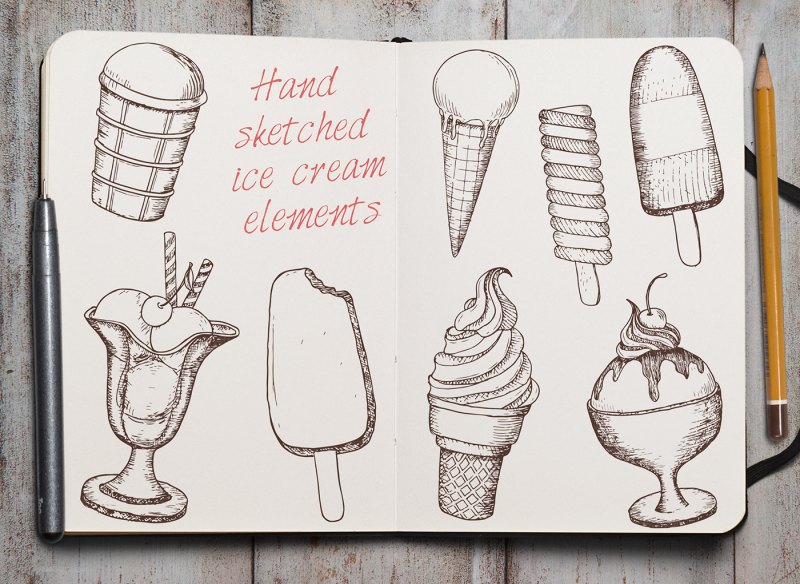 Hand
sketched
ice cream
elements